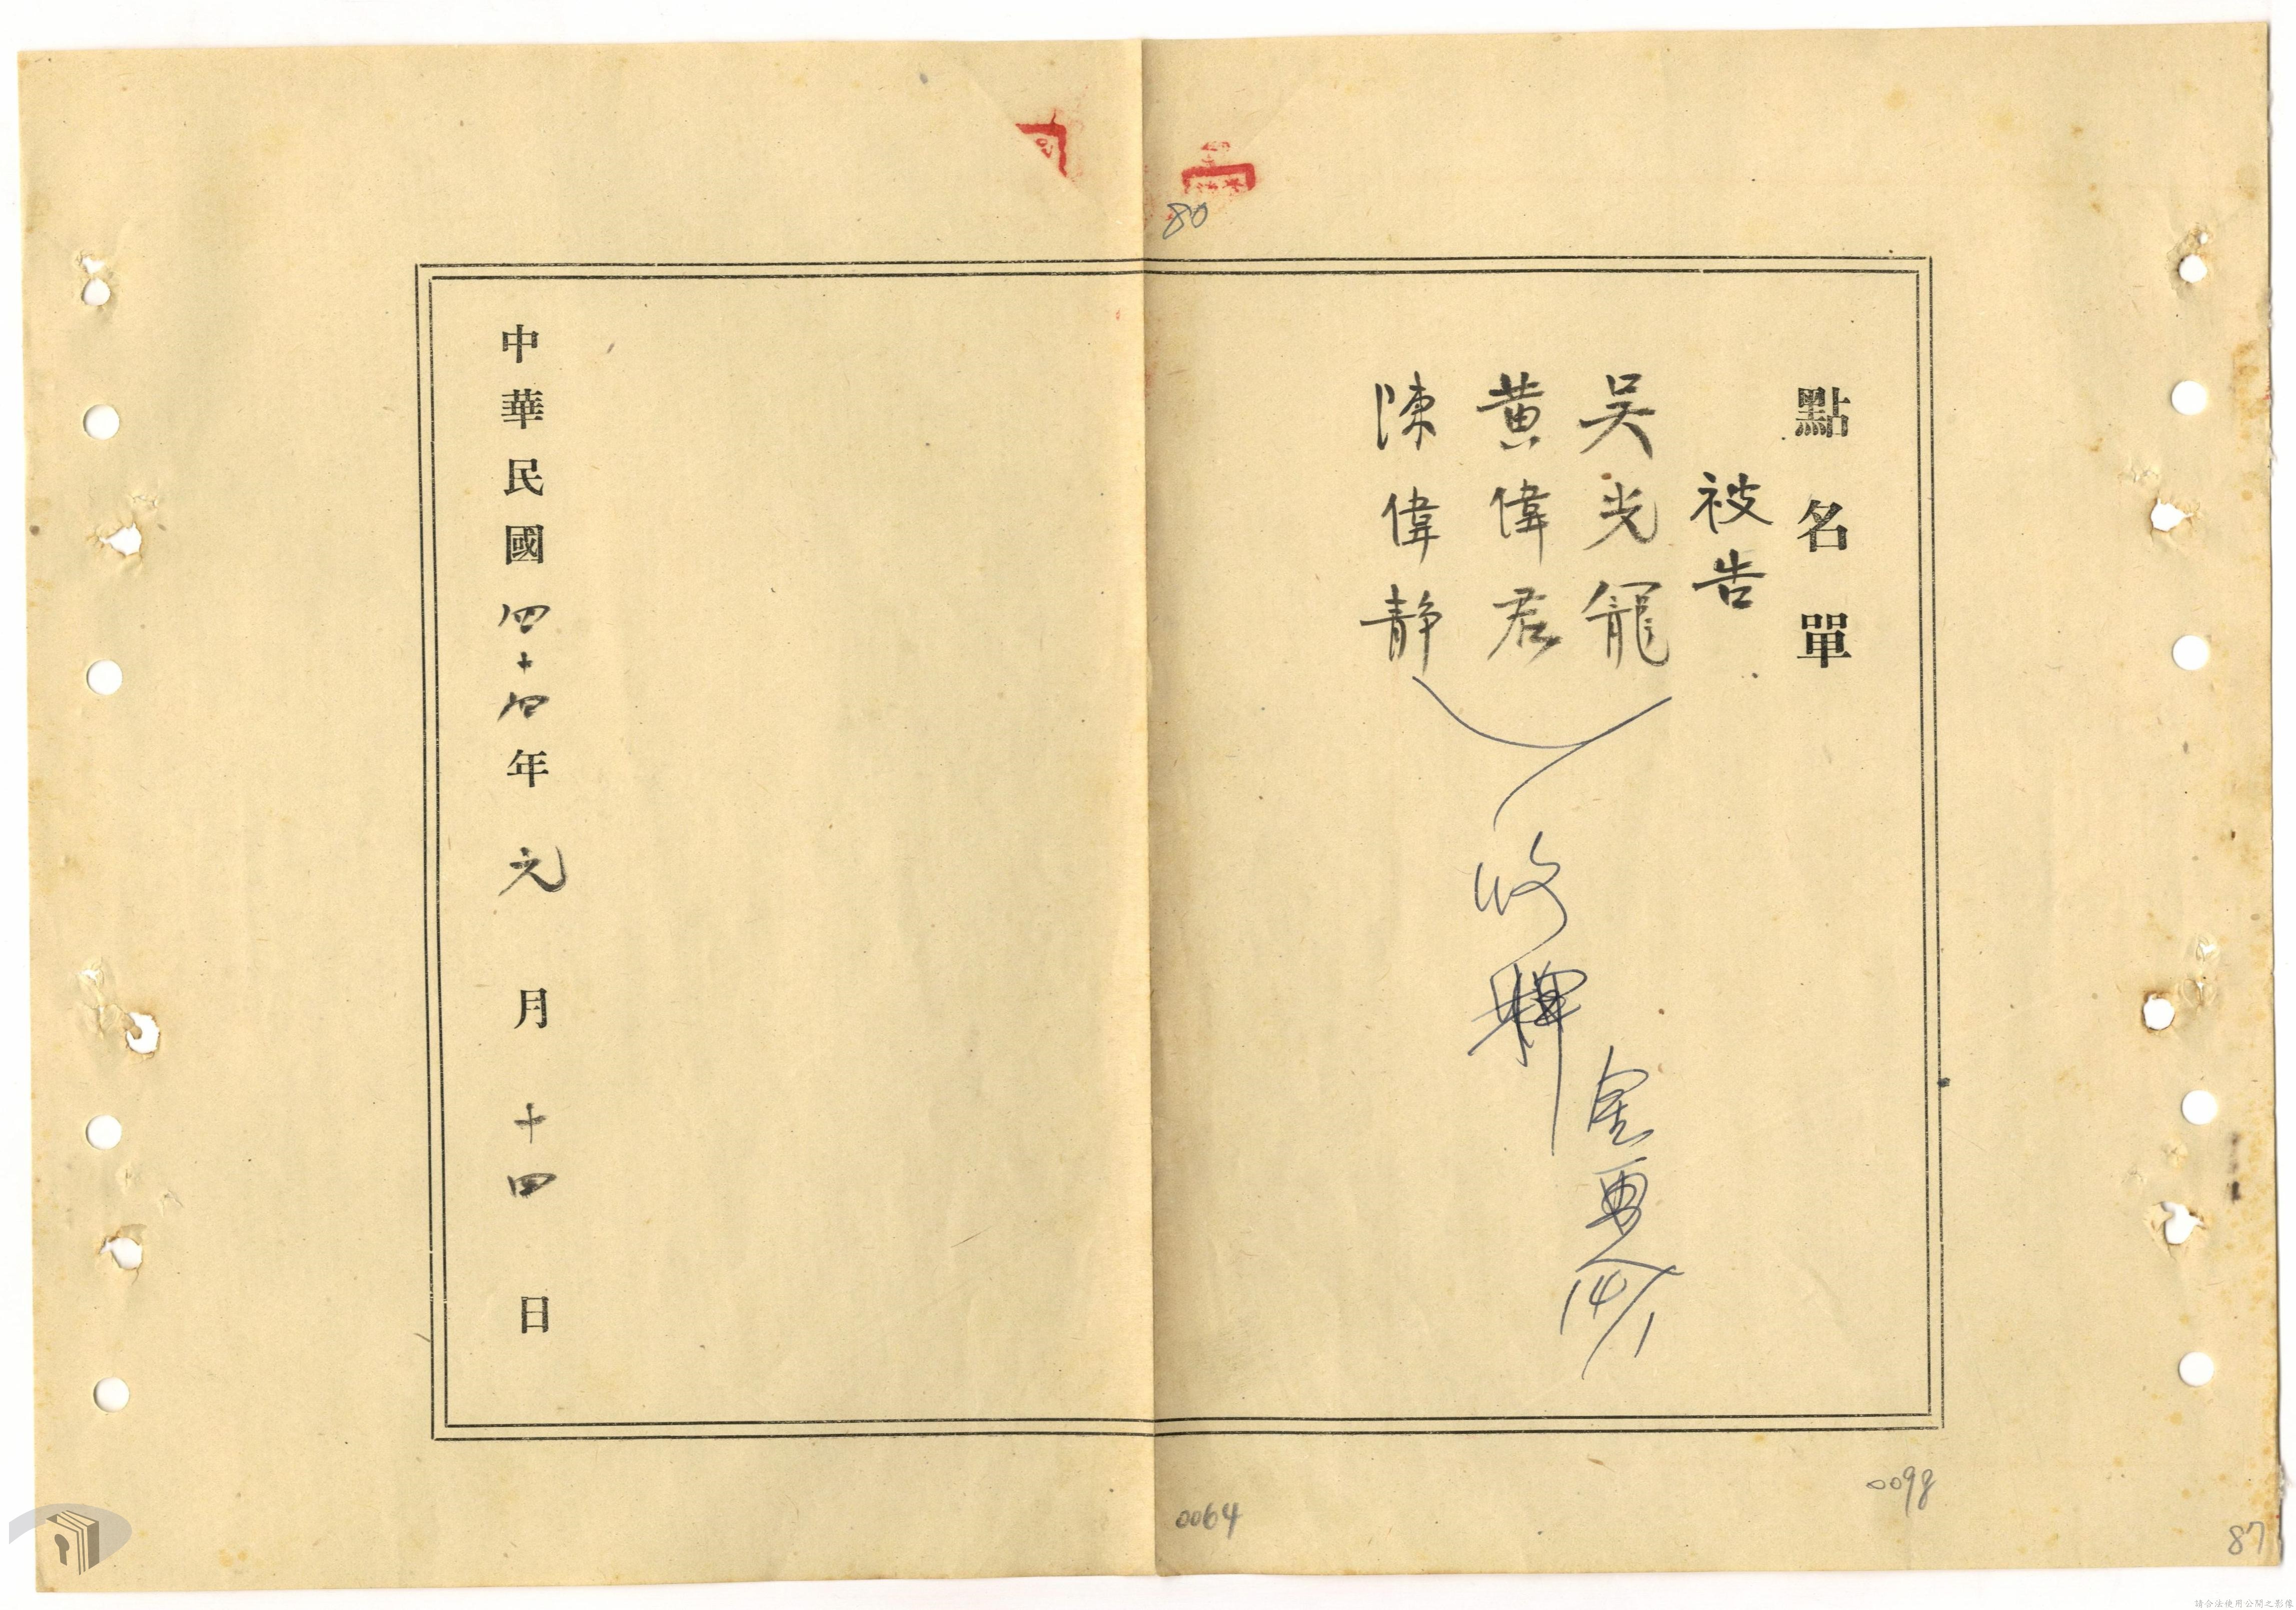 點名單
被告
吳光龍
黃偉君
陳偉静
收
14/1
中華民國四十四年元月十四日
80
0064
0098
87
請合法使用公開之影像